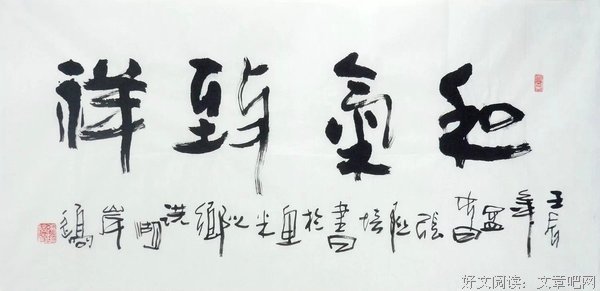 和氣致祥
壬辰年孟春張培書於魚米之鄉洪湖岸
好文阅读：文章吧网